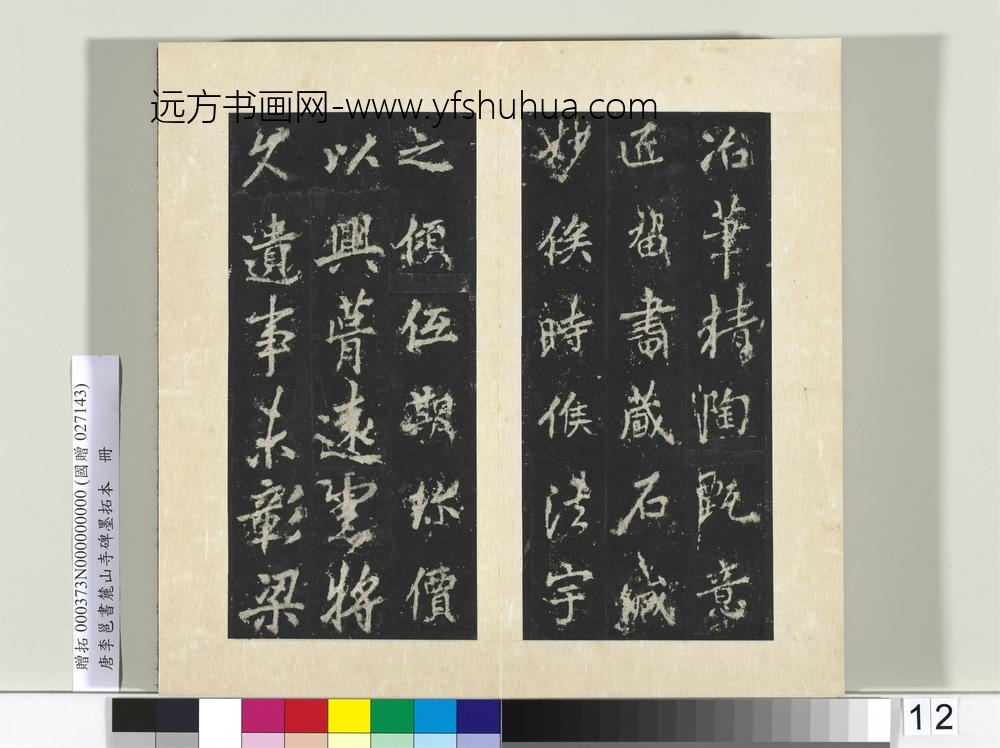 冶筆精淘甄意
匠留書藏石緘
妙俟時候法宇
之傾低期珎價
以興葺遠將
久遺事未彰梁
远方书画网-www.yfshuhua.com
贈拓 000373N000000000 (國贈 027143)
唐李邕書麓山寺碑墨拓本 冊
12